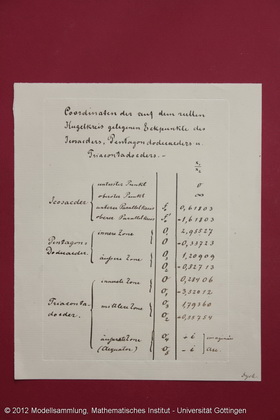 Coordinaten der auf dem vollen
Kugelkreis gelegenen Eckpunkte des
Icosaeders, Pentagondodecaeders u.
Triacontaedors.—
Icosaeder
unterster Punkt 0
oberster Punkt ∞
unterer Parallelkreis 0,61803
oberer Parallelkreis -1,61803
Pentagon-
Dodecaeder.
innere Zone 2,95527
-0,33723
äussere Zone 1,20909
-0,82713
Triaconta-
eder.
innerste Zone 0,28406
-3,52012
mittlere Zone 1,79360
-0,55754
äusserste Zone + i
(Aequator) - i
© 2012 Modellsammlung, Mathematisches Institut - Universität Göttingen